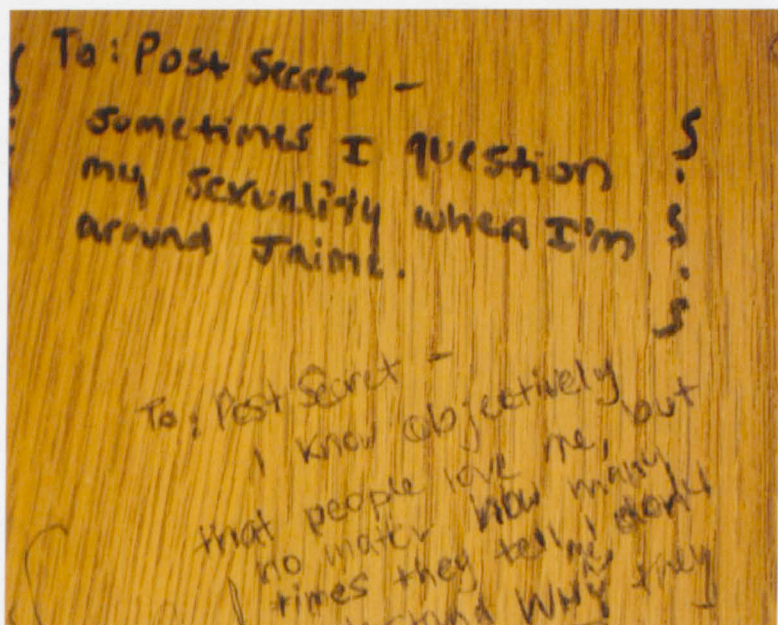 To: Post Secret -
Sometimes I question
my sexuality when I'm
around Jaime.
To: Post Secret -
I know objectively
that people love me, but
no mater how many
times they tell me I don't
WHY they